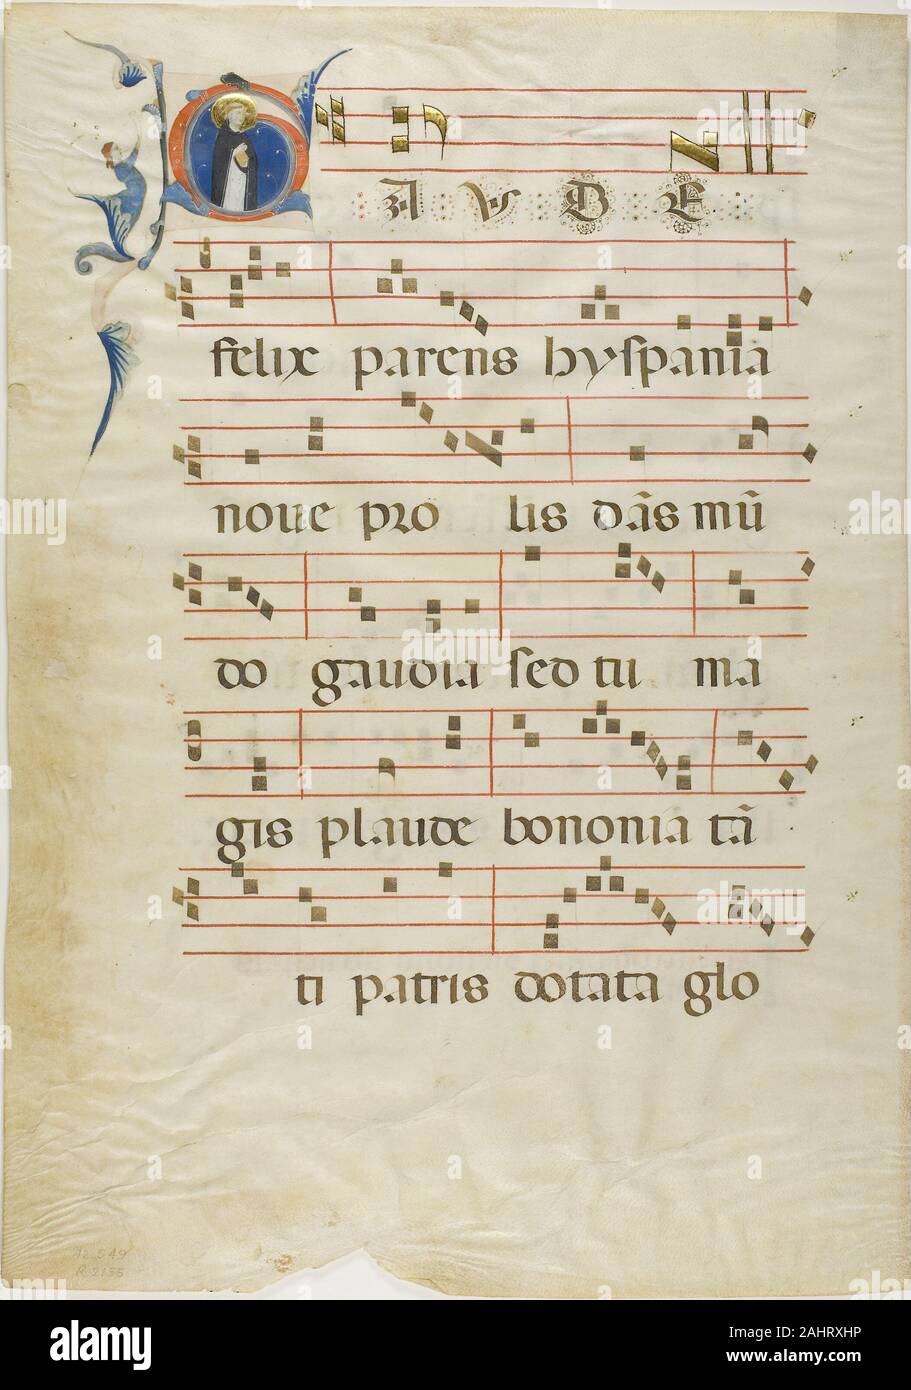 GAUDE
felix parens hyspania
noue pro lis dãs mũ
do gaudia sed tu ma
gis plaude bononia tã
ti patris dotata glo
12.549
R.2155
alamy
Image ID: 2AHRXHP
www.alamy.com